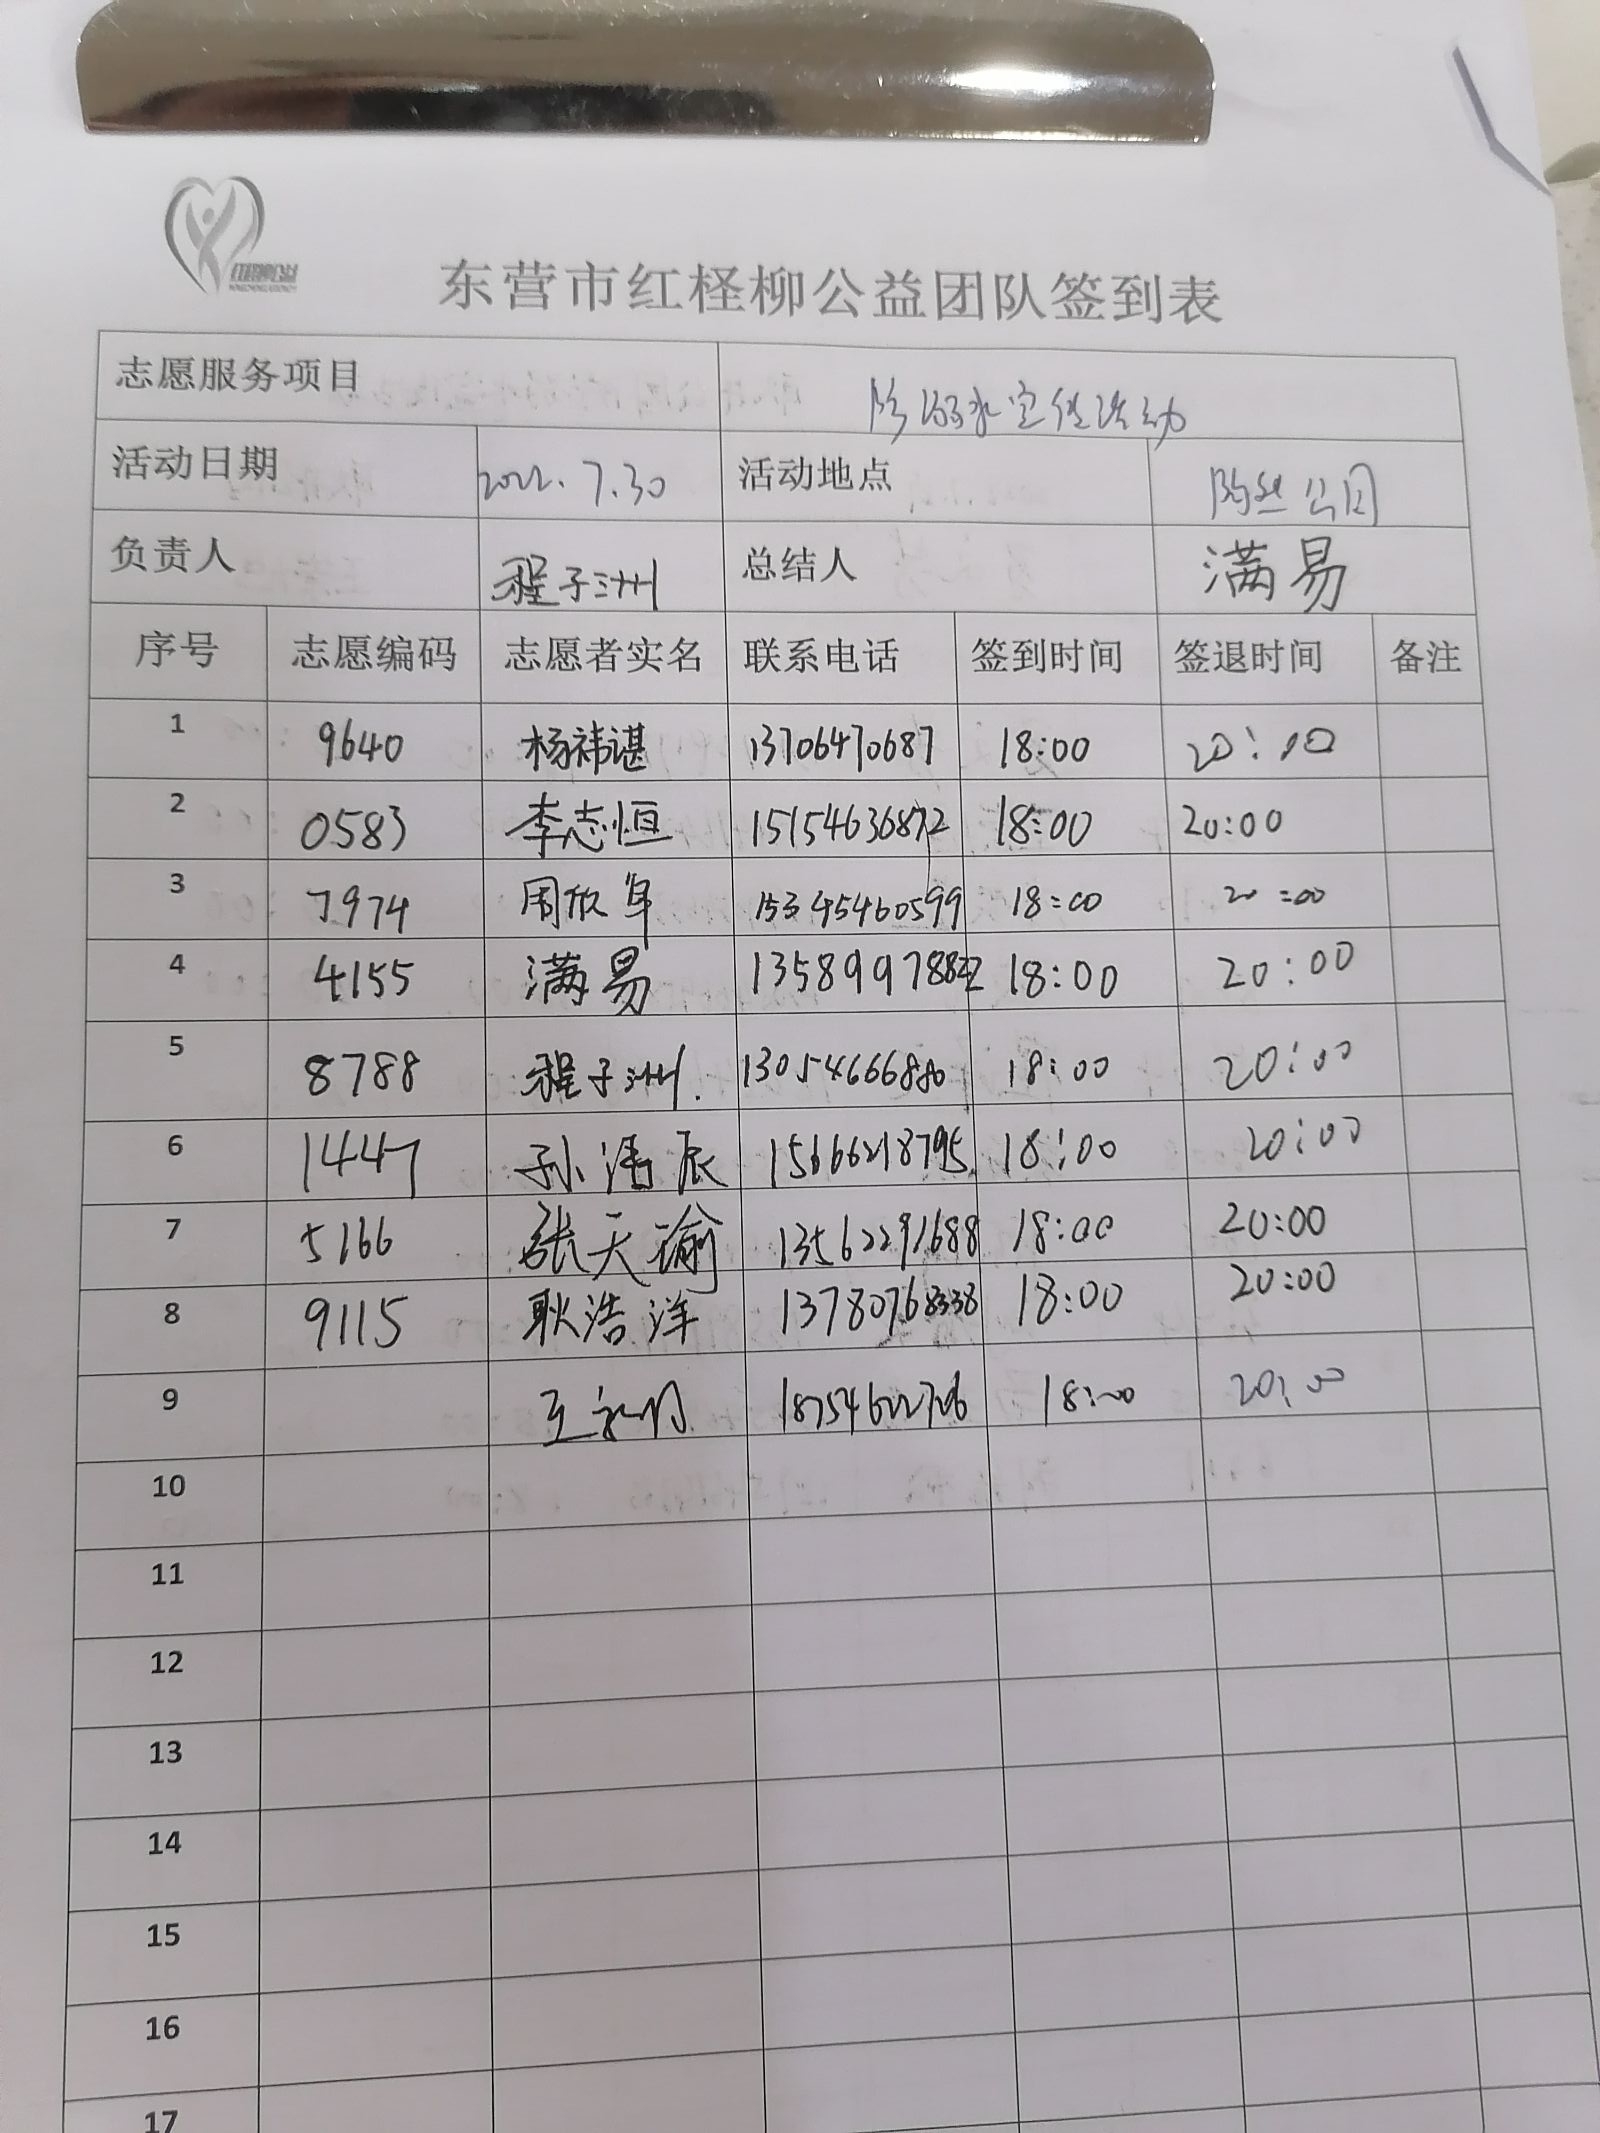 东营市红柽柳公益团队签到表
志愿服务项目 防溺水宣传活动
活动日期 2022.7.30 活动地点 公园
负责人 程子洲 总结人 满易
序号 志愿编码 志愿者实名 联系电话 签到时间 签退时间 备注
1 9640 杨祎谌 13706470687 18:00 20:10
2 0583 李志恒 15154636872 18:00 20:00
3 7974 周欣 15345460599 18:00 20:00
4 4155 满易 18:00 20:00
5 8788 程子洲. 13054666880 18:00 20:00
6 1447 孙浯辰 15666218795 18:00 20:00
7 5166 张天瑜 13562291688 18:00 20:00
8 9115 耿浩洋 13780768338 18:00 20:00
9 18754622726 18:00 20:00
10
11
12
13
14
15
16
17